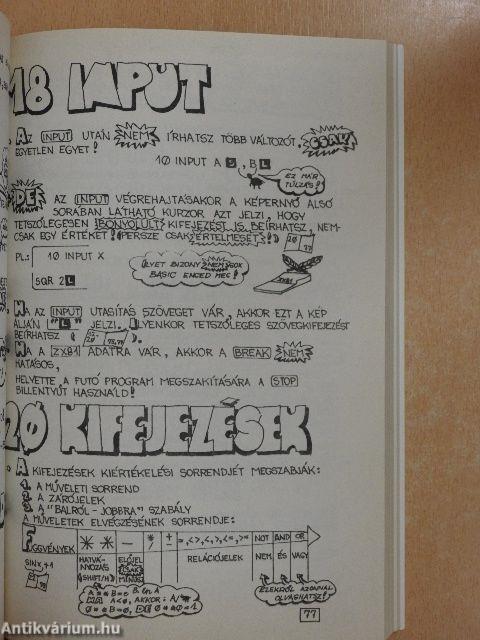 18 INPUT
AZ INPUT UTÁN NEM ÍRHATSZ TÖBB VÁLTOZÓT, CSAK
EGYETLEN EGYET!
10 INPUT A S, B L
EZ MÁR
TÚLZÁS!
DE AZ INPUT VÉGREHAJTÁSAKOR A KÉPERNYŐ ALSÓ
SORÁBAN LÁTHATÓ KURZOR AZT JELZI, HOGY
TETSZŐLEGESEN BONYOLULT KIFEJEZÉST IS BEÍRHATSZ, NEM-
CSAK EGY ÉRTÉKET! (PERSZE CSAK ÉRTELMESET!)
PL.: 10 INPUT X
SQR 2 L
ILYET BIZONY NEM SOK
BASIC ENGED MEG!
HA AZ INPUT UTASÍTÁS SZÖVEGET VÁR, AKKOR EZT A KÉP
ALJÁN "L" JELZI. ILYENKOR TETSZŐLEGES SZÖVEGKIFEJEZÉST
BEÍRHATSZ
HA A ZX81 ADATRA VÁR, AKKOR A BREAK NEM
HATÁSOS,
HELYETTE A FUTÓ PROGRAM MEGSZAKÍTÁSÁRA A STOP
BILLENTYŰT HASZNÁLD!
20 KIFEJEZÉSEK
A KIFEJEZÉSEK KIÉRTÉKELÉSI SORRENDJÉT MEGSZABJÁK:
1. A MŰVELETI SORREND
2. A ZÁRÓJELEK
3. A "BALRÓL - JOBBRA" SZABÁLY
A MŰVELETEK ELVÉGZÉSÉNEK SORRENDJE:
FÜGGVÉNYEK ** - *,/ ± =,<>,<,>,<=,>= NOT AND OR
HATVÁ-
NYOZÁS
(SHIFT/H)
ELŐJEL
CSAK
MÍNUSZ
RELÁCIÓJELEK
NEM, ÉS VAGY
SIN X+1
EZEKRŐL AZONNAL
OLVASHATSZ!
77
Antikvárium.hu